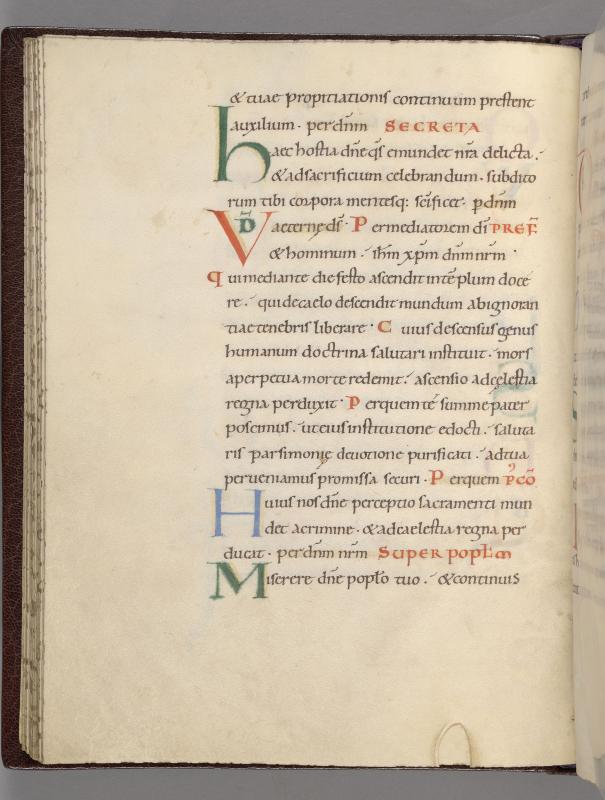 & tuae propitiationis continuum prestent
auxilium · per dn̄m SECRETA
haec hostia dn̄e qs̄ emundet nr̄a delicta ·
& ad sacrificium celebrandum · subdito
rum tibi corpora mentesq: sc̄ificet · p dn̄m
VD aeterne ds̄ · Per mediatorem dī PREF̄
& hominum · ih̄m xp̄m dn̄m nr̄m ·
qui mediante die festo ascendit in tēplum doce
re · qui de caelo descendit mundum ab ignoran
tiae tenebris liberare · Cuius descensus genus
humanum doctrina salutari instituit · mors
a perpetua morte redemit · ascensio ad cęlestia
regna perduxit · Per quem tē summe pater
poscimus · ut eius institutione edocti · saluta
ris parsimonię deuotione purificati · ad tua
perueniamus promissa securi · Per quem P̄CŌ
Huius nos dn̄e perceptio sacramenti mun
det a crimine · & ad caelestia regna per
ducat · per dn̄m nr̄m SUPER POPŁM
Miserere dn̄e popło tuo · & continuis